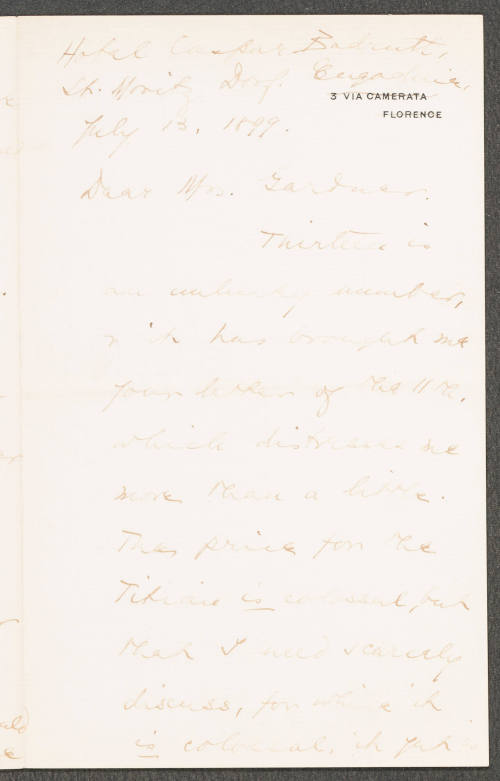 Hotel Caspar Badrutt,
St. Moritz Dorf. Engadine.
3 VIA CAMERATA
FLORENCE
July 13, 1899.
Dear Mrs. Gardner.
Thirteen is
an unlucky number,
& it has brought me
your letter of the 11th,
which distresses me
more than a little.
The price for the
Titian is colossal, but
that I need scarcely
discuss, for while it
is colossal, it